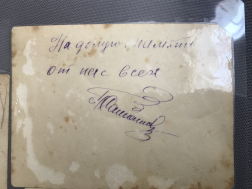 На долгую память
от нас всех